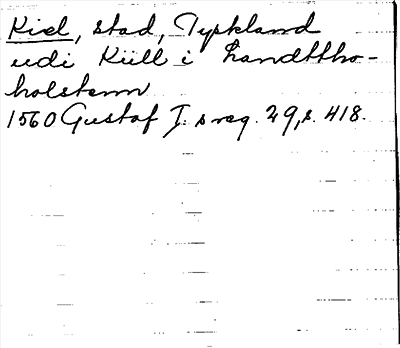 Kiel, stad, Tyskland
udi Küll i Landttho-
holstenn
1560 Gustaf I:s reg. 29, s. 418.